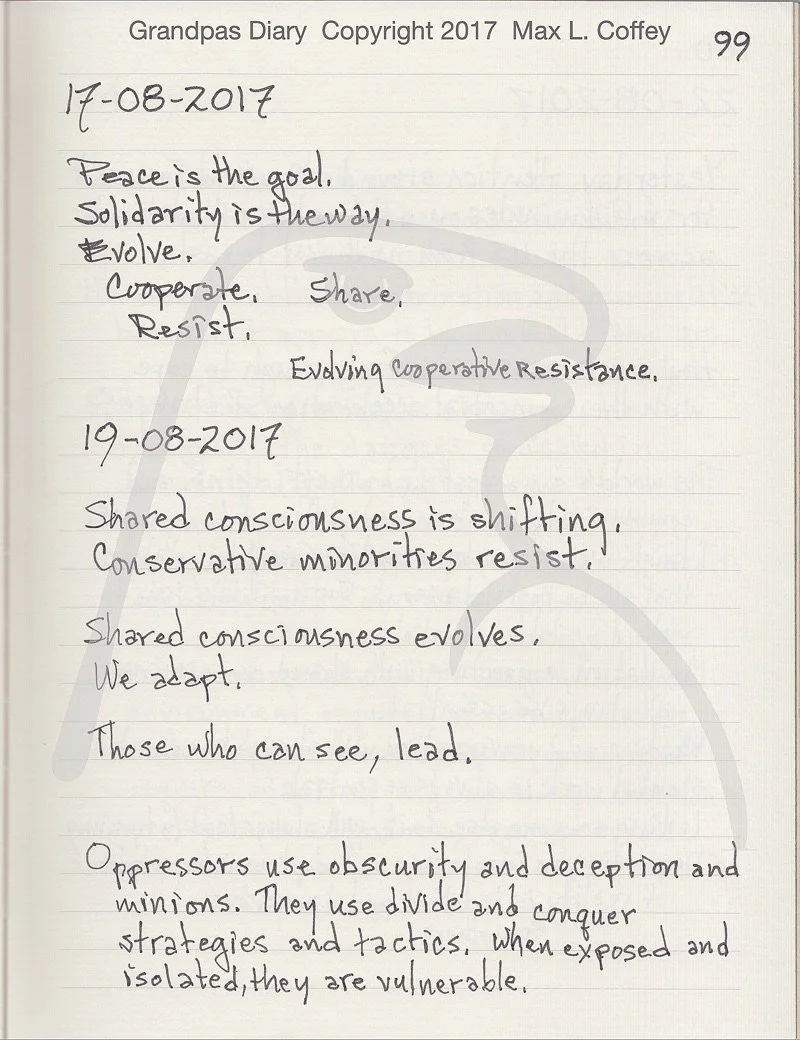 Grandpas Diary Copyright 2017 Max L. Coffey
99
17-08-2017
Peace is the goal.
Solidarity is the way.
Evolve.
Cooperate. Share.
Resist.
Evolving Cooperative Resistance.
19-08-2017
Shared consciousness is shifting.
Conservative minorities resist.
Shared consciousness evolves.
We adapt.
Those who can see, lead.
Oppressors use obscurity and deception and
minions. They use divide and conquer
strategies and tactics. When exposed and
isolated, they are vulnerable.